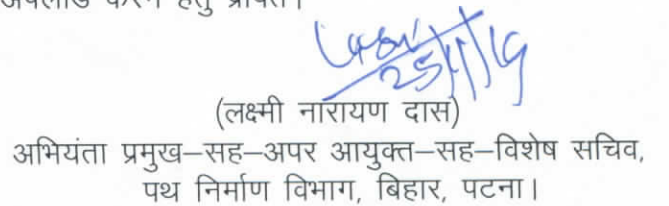 करने हेतु प्रेषित।
25/1/19
(लक्ष्मी नारायण दास)
अभियंता प्रमुख–सह–अपर आयुक्त–सह–विशेष सचिव,
पथ निर्माण विभाग, बिहार, पटना।